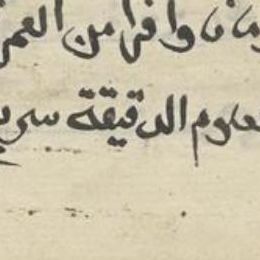 ومانا وافرا من العمر
علوم الدقيقة سر